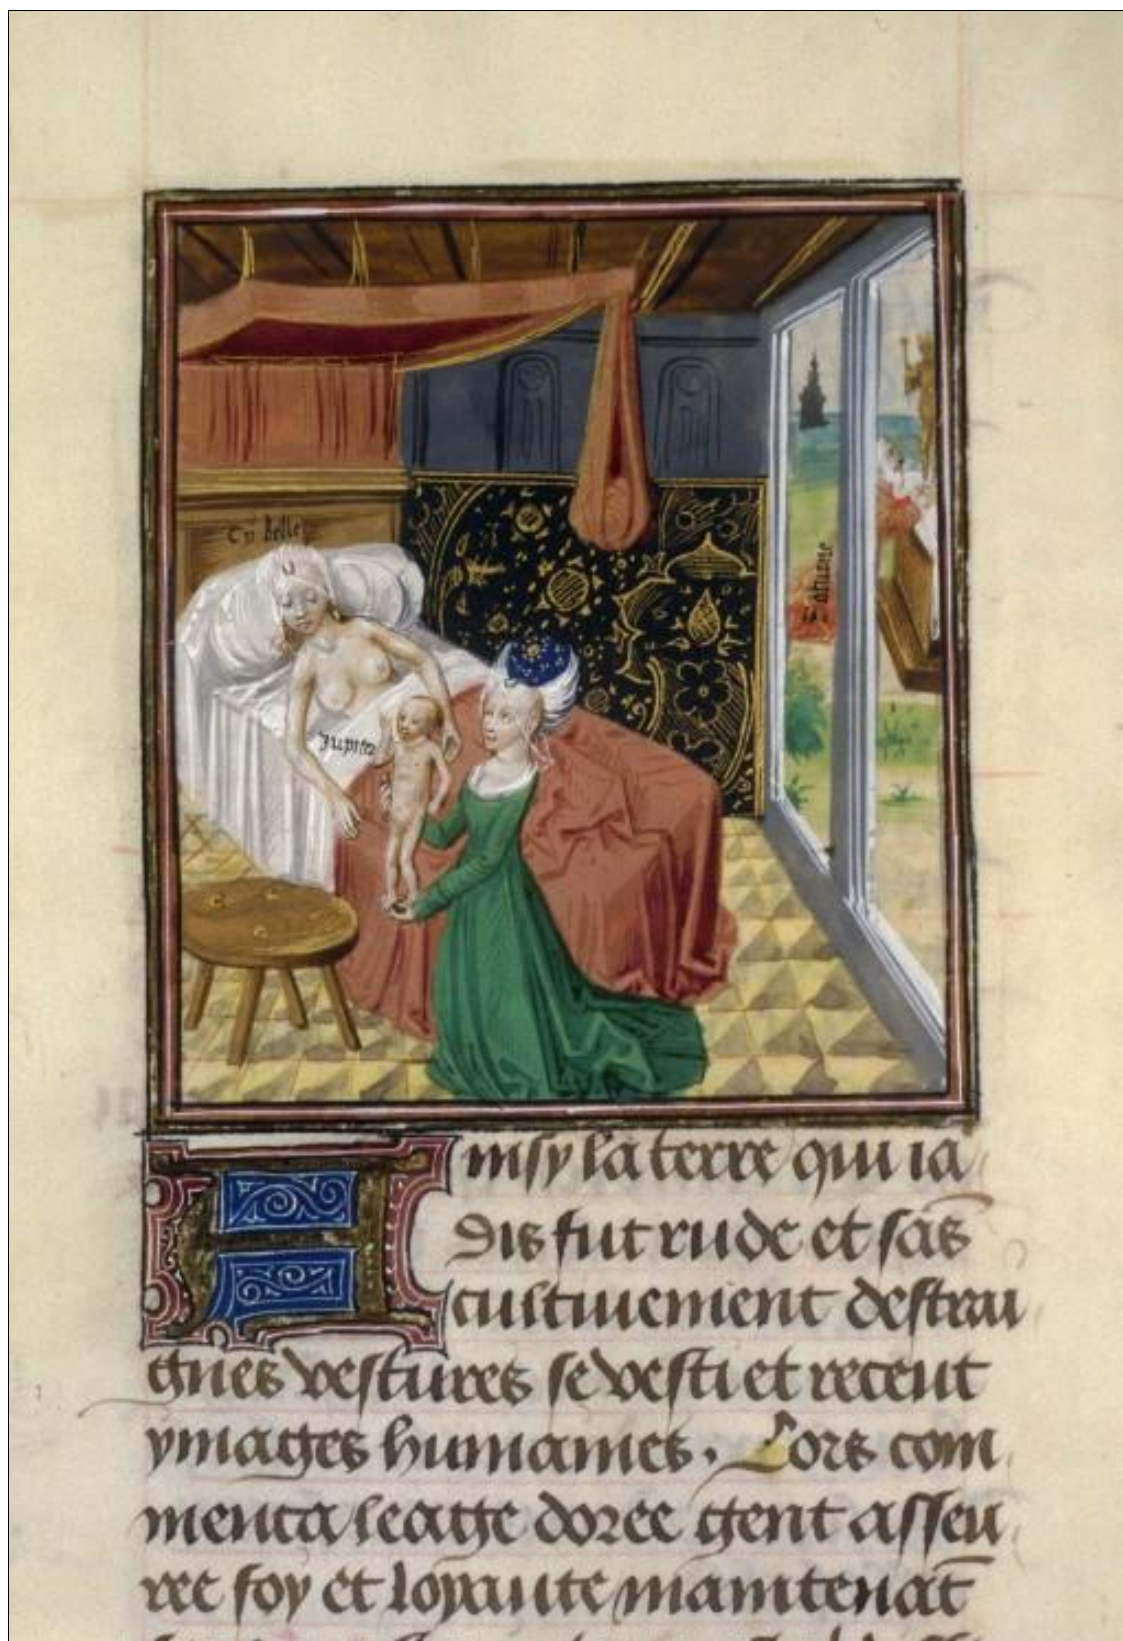 Cybelle
Jupiter
Saturne
Ainsy la terre qui ia
dis fut rude et sās
cultiuement destrā
gnes vestures se vesti et receut
ymages humaines. Lors com
menca leage doree gent asseu
ree foy et loyaute maintenāt